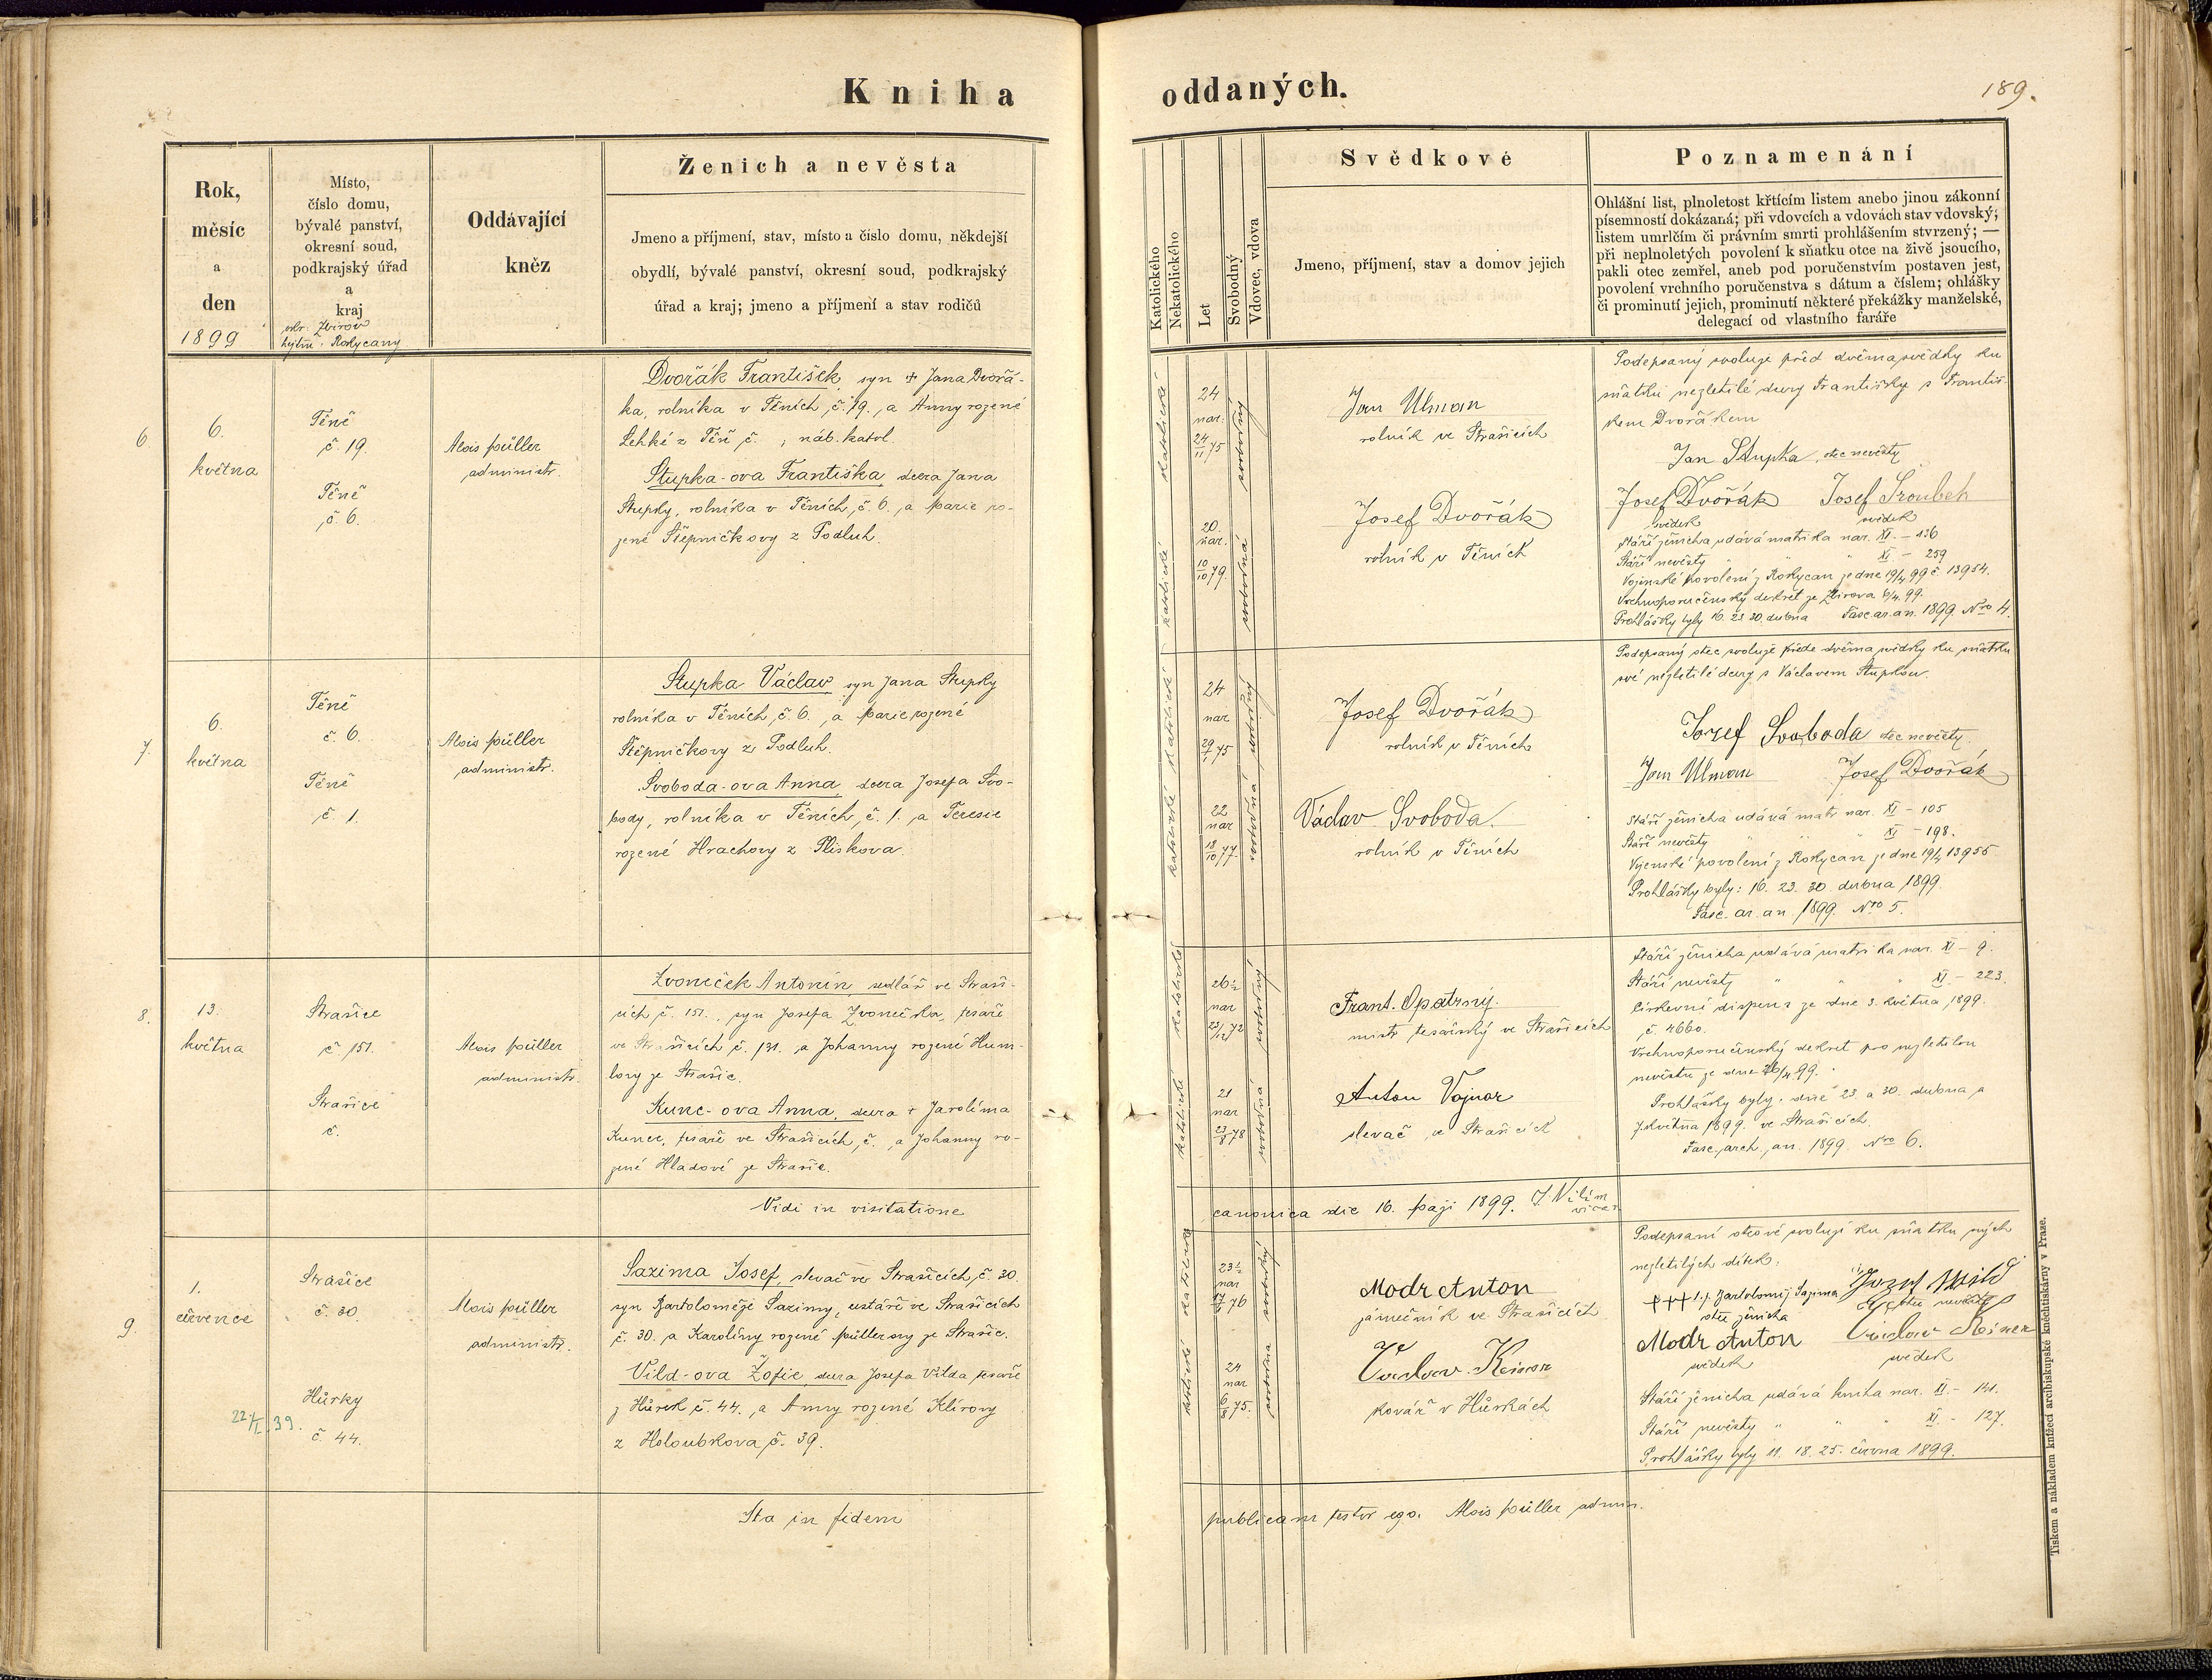 Kniha
oddaných.
189.
Rok,
měsíc
a
den
1899
Místo,
číslo domu,
bývalé panství,
okresní soud,
podkrajský úřad
a
kraj
okr. Zbirov
hejtm. Rokycany
Oddávající
kněz
Ženich a nevěsta
Jmeno a příjmení, stav, místo a číslo domu, někdejší
obydlí, bývalé panství, okresní soud, podkrajský
úřad a kraj; jmeno a příjmení a stav rodičů
Katolického
Nekatolického
Let
Svobodný
Vdovec, vdova
Svědkové
Jmeno, příjmení, stav a domov jejich
Poznamenání
Ohlášní list, plnoletost křtícím listem anebo jinou zákonní
písemností dokázaná; při vdovcích a vdovách stav vdovský;
listem umrlčím či právním smrti prohlášením stvrzený; —
při neplnoletých povolení k sňatku otce na živě jsoucího,
pakli otec zemřel, aneb pod poručenstvím postaven jest,
povolení vrchního poručenstva s dátum a číslem; ohlášky
či prominutí jejich, prominutí některé překážky manželské,
delegací od vlastního faráře
6.
6.
května
Těně
č. 19.
Těně
č. 6.
Alois Müller
administr.
Dvořák František, syn + Jana Dvořá-
ka, rolníka v Těních, č. 19., a Anny rozené
Lehké z Těň č. ; náb. katol.
Stupka-ova Františka, dcera Jana
Stupky, rolníka v Těních, č. 6., a Marie ro-
zené Štěpničkovy z Podluh.
katolické
24
nar.
24/11 75
svobodný
katolické
20.
nar.
10/10 79.
svobodná
Jan Ulman
rolník ve Strašicích
Josef Dvořák
rolník v Těních
Podepsaný svoluje před dvěma svědky ku
sňatku nezletilé dcery Františky s Františ-
kem Dvořákem
Jan Stupka, otec nevěsty
Josef Dvořák Josef Šroubek
svědek svědek
Stáří ženicha udává matrika nar. XI. – 136
Stáří nevěsty " " XI – 259
Vojenské povolení z Rokycan ze dne 19/4 99 č. 13954.
Vrchnoporučenský dekret ze Zbirova 6/4. 99.
Prohlášky byly 16. 23 30. dubna Fasc. ar. an. 1899. Nro 4.
7.
6.
května
Těně
č. 6.
Těně
č. 1.
Alois Müller
administr.
Stupka Václav, syn Jana Stupky
rolníka v Těních, č. 6., a Marie rozené
Štěpničkovy z Podluh.
Svoboda-ova Anna, dcera Josefa Svo-
body, rolníka v Těních, č. 1. a Teresie
rozené Hrachovy z Pliskova.
katolické
24
nar
svobodný
katolické
22
nar
18/10 77.
svobodná
Josef Dvořák
rolník v Těních
Václav Svoboda.
rolník v Těních
Podepsaný otec svoluje přede dvěma svědky ku sňatku
své nezletilé dcery s Václavem Stupkou.
Jozef Svoboda otec nevěsty.
Jan Ulman Josef Dvořák
Stáří ženicha udává matr. nar. XI – 105
Stáří nevěsty " " " XI – 198.
Vojenské povolení z Rokycan ze dne 19/4 13955
Prohlášky byly: 16. 23. 30. dubna 1899.
Fasc. ar. an. 1899. Nro 5.
8.
13.
května
Strašice
č. 151.
Strašice
č.
Alois Müller
administr.
Zvoneček Antonín, sedlář ve Straši-
cích č. 151., syn Josefa Zvonečka, tesaře
ve Strašicích č. 131. a Johanny rozené Hum-
lovy ze Strašic.
Kunc-ova Anna, dcera + Jarolíma
Kunce, tesaře ve Strašicích, č. , a Johanny ro-
zené Hladové ze Strašic.
katolické
26½
nar
23/12 72
svobodný
katolické
21
nar
23/8 78
svobodná
Frant. Opatrný.
mistr tesařský ve Strašicích
Anton Vojnar
slevač ve Strašicích
Stáří ženicha udává matrika nar. XI – 9.
Stáří nevěsty " " " XI – 223.
Církevní dispens ze dne 3. května 1899.
č. 4660.
Vrchnoporučenský dekret pro nezletilou
nevěstu ze dne 26/4. 99.
Prohlášky byly: dne 23. a 30. dubna a
7. května 1899. ve Strašicích.
Fasc. arch. an. 1899. Nro 6.
Vidi in visitatione
canonica die 16. Maji 1899. J. Vilím
vicar
9.
1.
července
Strašice
č. 30.
Hůrky
č. 44.
39.
Alois Müller
administr.
Sazima Josef, slevač ve Strašicích, č. 30.
syn Bartoloměje Sazimy, cestáře ve Strašicích
č. 30. a Karolíny rozené Müllerovy ze Strašic.
Vild-ova Žofie, dcera Josefa Vilda tesaře
z Hůrek č. 44., a Anny rozené Klírovy
z Holoubkova č. 39.
katolické
23½
nar
svobodný
katolické
24
nar
6/8 75.
svobodná
Modr Anton
zámečník ve Strašicích
kovář v Hůrkách
Podepsaní otcové svolují ku sňatku svých
nezletilých dítek:
+++ Bartoloměj Sazima Jozef Wild
otec ženicha otec nevěsty
Modr Anton
svědek svědek
Stáří ženicha udává kniha nar. XI. – 141.
Stáří nevěsty " " " XI. – 127.
Prohlášky byly 11. 18. 25. června 1899.
Ita in fidem
publicam testor ego. Alois Müller admin.
Tiskem a nákladem knížecí arcibiskupské knihtiskárny v Praze.